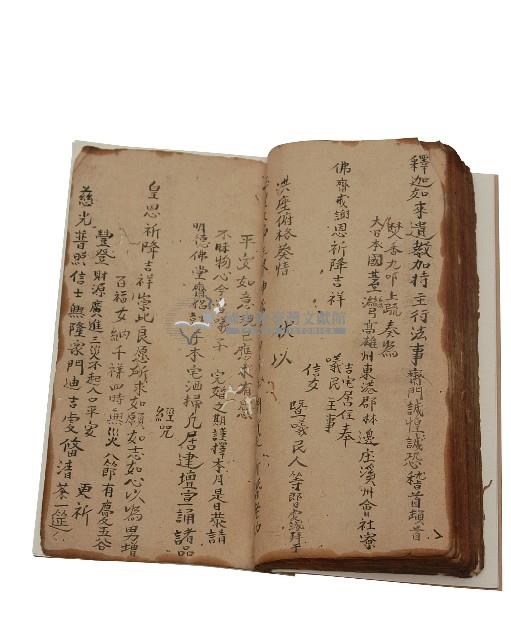 釋迦如來遺教加持主行法事齋門誠惶誠恐稽首頓首
焚香九叩上疏奏為
大日本國臺灣高雄州東港郡林邊庄溪州會社寮
佛齋戒謝恩祈降吉祥
吉宅居住奉
曦民主事
信女
暨曦民人等即日
洪座俯格葵情
伏以
平安如意
已應未有
不昧物心今
子 完
之期謹擇本月是日恭請
明德佛堂齋
本宅洒掃凡居建壇宣誦諸品
經咒
皇恩祈降吉祥崇此良愿所求如願如志如心以為男增
百福女納千祥四時無災八節有慶五谷
豐登 財源廣進三災不起人口平安
更祈
慈光普照信士興隆家門迪吉虔備清茶一筵